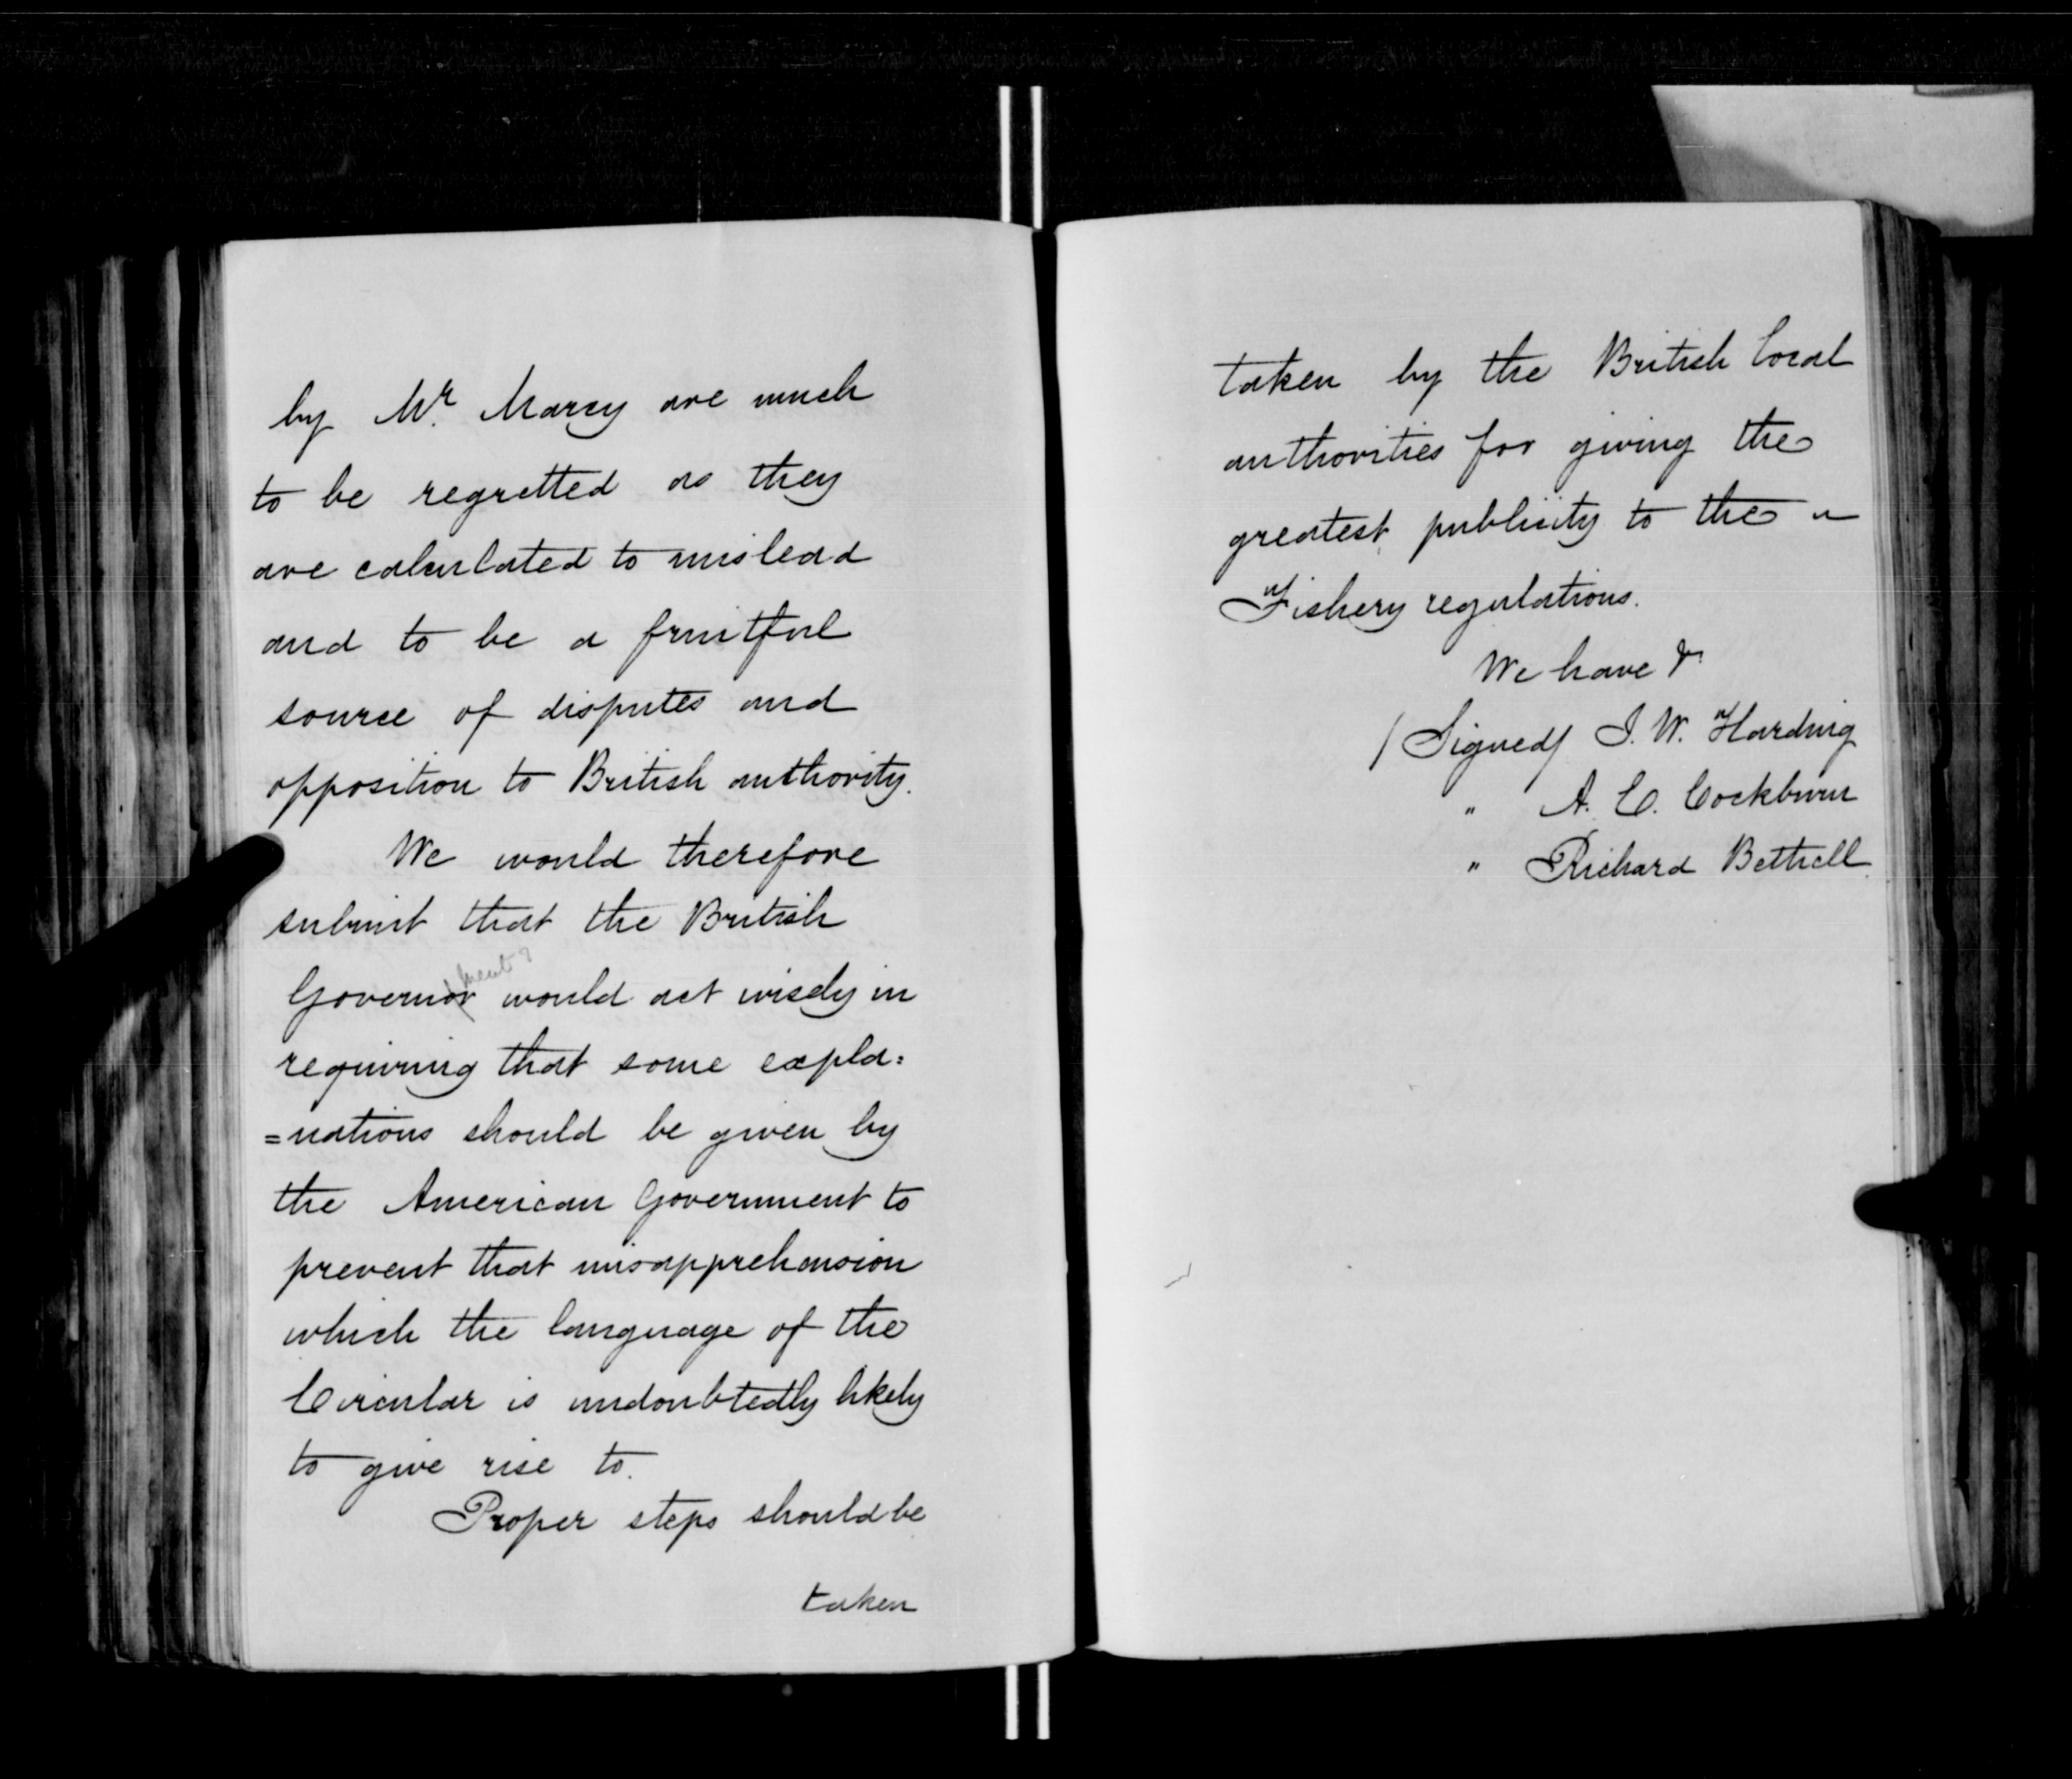 by Mr. Marcy are much
to be regretted as they
are calculated to mislead
and to be a fruitful
source of disputes and
opposition to British authority.
We would therefore
submit that the British
ment?
Governor would act wisely in
requiring that some expla=
=nations should be given by
the American Government to
prevent that misapprehension
which the language of the
Circular is undoubtedly likely
to give rise to.
Proper steps should be
taken
taken by the British local
authorities for giving the
greatest publicity to the
Fishery regulations.
We have &c
(Signed) J. W. Harding
" A. C. Cockburn
" Richard Bethell